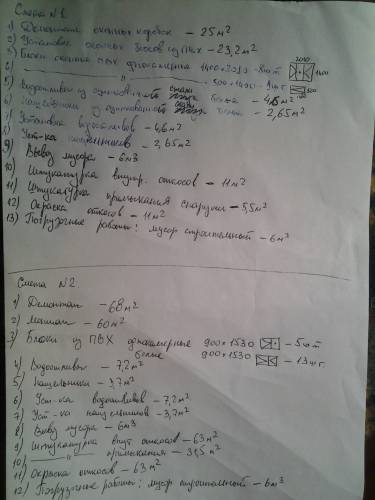 Смета №1
1) Демонтаж оконных коробок – 25 м²
2) Установка оконных блоков из ПВХ – 23,2 м²
3) Блоки оконные ПВХ однокамерные 1400×2010 – 8шт
2010
1400
4) " 500×1400 – 1шт
500
5) Водоотливы из оцинкованной стали белые – 4,6 м²
6) Нащельники из оцинкованной стали белые – 2,65 м²
7) Установка водоотливов – 4,6 м²
8) Уст-ка нащельников – 2,65 м²
9) Вывоз мусора – 6 м³
10) Штукатурка внутр. откосов – 11 м²
11) Штукатурка примыкания снаружи – 5,5 м²
12) Окраска откосов – 11 м²
13) Погрузочные работы: мусор строительный – 6 м³
Смета №2
1) Демонтаж – 68 м²
2) Монтаж – 60 м²
3) Блоки из ПВХ однокамерные 900×1530 – 5шт
белые 900×1530 – 13шт.
4) Водоотливы – 7,2 м²
5) Нащельники – 3,7 м²
6) Уст-ка водоотливов – 7,2 м²
7) Уст-ка нащельников – 3,7 м²
8) Вывоз мусора – 6 м³
9) Штукатурка внут откосов – 63 м²
10) " примыкания – 31,5 м²
11) Окраска откосов – 63 м²
12) Погрузочные работы: мусор строительный – 6 м³